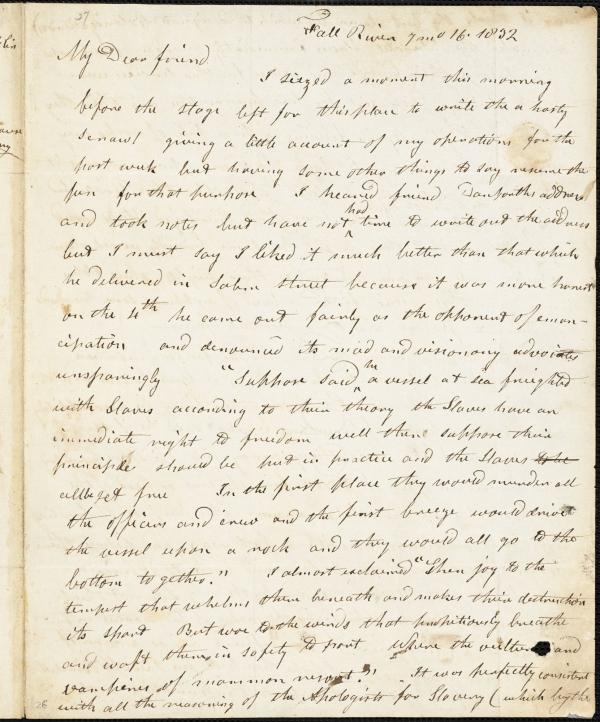 27
Fall River 7 mo 16. 1832
My Dear friend
I seized a moment this morning
before the stage left for this place to write thee a hasty
scrawl giving a little account of my operations for the
past week but having some other things to say resume the
pen for that purpose I heared friend Danforths address
and took notes but have not had time to write out the address
but I must say I liked it much better than that which
he delivered in Salem Street because it was more honest
on the 4th he came out fairly as the opponent of eman-
cipation and denounced its mad and visionary advocates
unsparingly "Suppose said he a vessel at sea freighted
with Slaves according to their theory the Slaves have an
immediate right to freedom well then suppose their
principles should be put in practice and the Slaves to be
all set free In the first place they would murder all
the officers and crew and the first breeze would drive
the vessel upon a rock and they would all go to the
bottom together." I almost exclaimed "Then joy to the
tempest that whelms them beneath and makes their destruction
its sport But woe to the winds that propitiously breathe
and waft them in safety to port Where the vultures and
vampires of mammon resort." It was perfectly consistent
with all the reasoning of the Apologists for Slavery (which by the
26